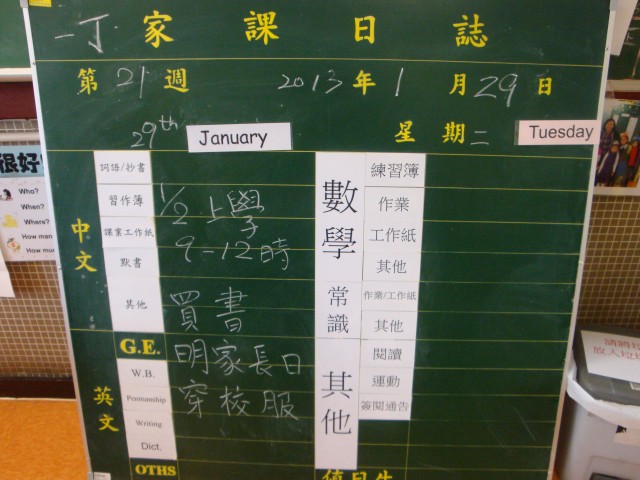 一丁 家課日誌
第21週 2013年1月29日
29th January 星期二 Tuesday
中文
詞語/抄書
習作簿
課業工作紙
默書
其他
1/2 上學
9-12時
買書
明家長日
穿校服
G.E.
英文
W.B.
Penmanship
Writing
Dict.
OTHS
數學
練習簿
作業
工作紙
其他
常識
作業/工作紙
其他
其他
閱讀
運動
簽閱通告
值日生
很好
Who?
When?
Where?
How man
How mu
請將垃
放入垃圾